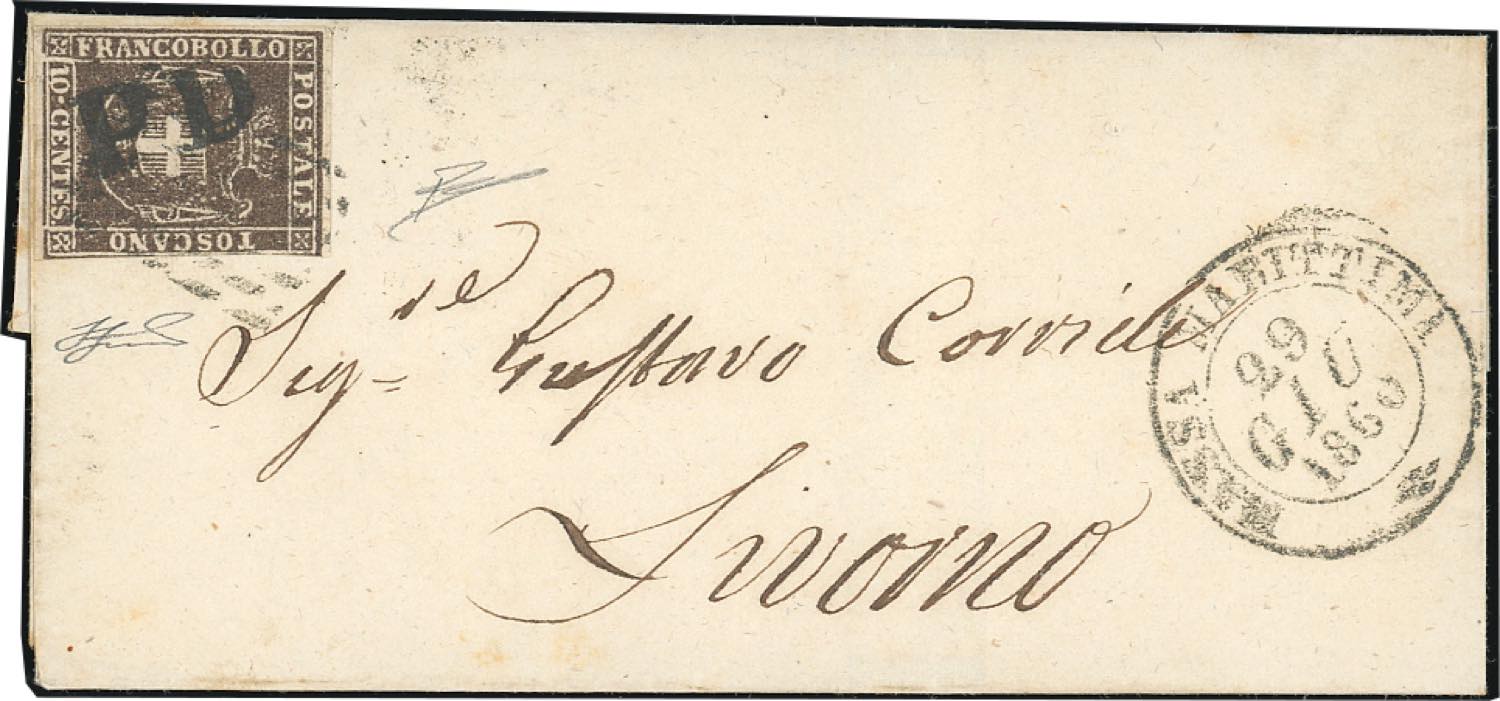 FRANCOBOLLO
POSTALE
TOSCANO
10·CENTES.
PD
Sig.re Gustavo Corridi
Livorno
MASSA MARITTIMA
29
GIU
1860